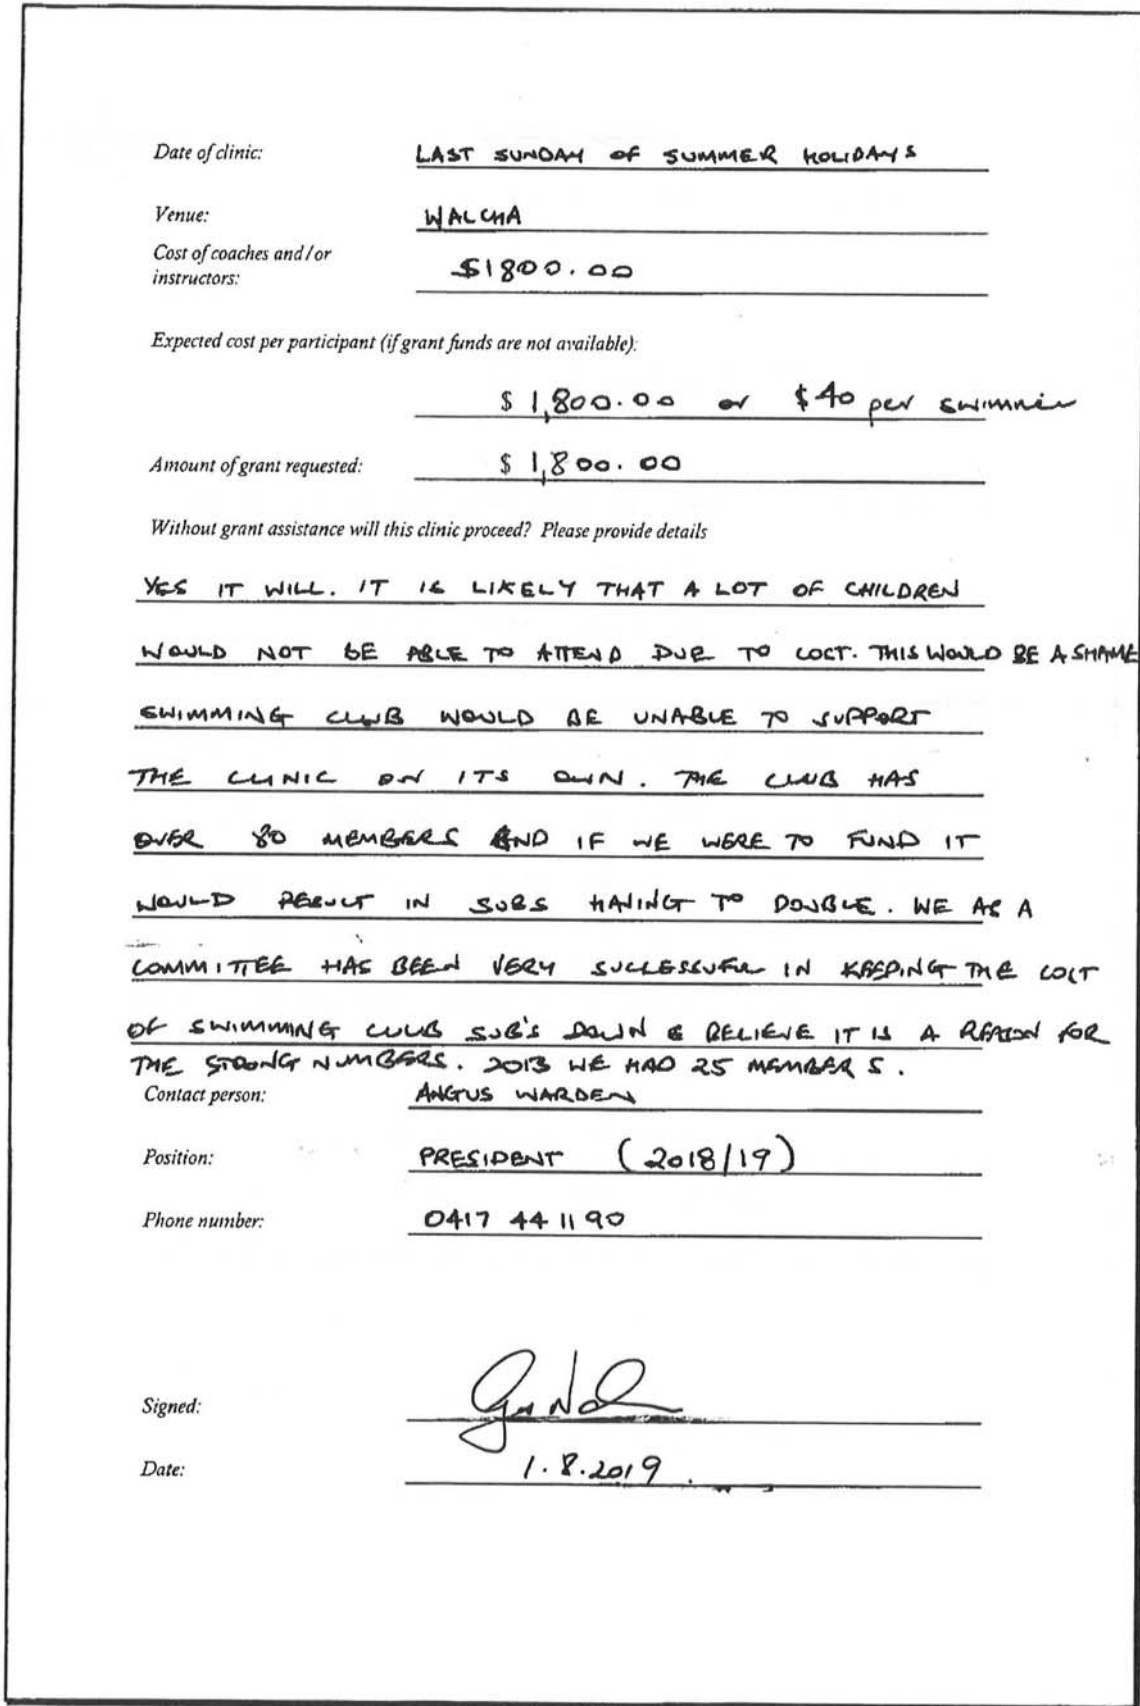 Date of clinic: LAST SUNDAY OF SUMMER HOLIDAYS
Venue: WALCHA
Cost of coaches and/or
instructors: $1800.00
Expected cost per participant (if grant funds are not available):
$ 1,800.00 or $40 per swimmer
Amount of grant requested: $ 1,800.00
Without grant assistance will this clinic proceed? Please provide details
YES IT WILL. IT IS LIKELY THAT A LOT OF CHILDREN
WOULD NOT BE ABLE TO ATTEND DUE TO COST. THIS WOULD BE A SHAME
SWIMMING CLUB WOULD BE UNABLE TO SUPPORT
THE CLINIC ON ITS OWN. THE CLUB HAS
OVER 80 MEMBERS AND IF WE WERE TO FUND IT
WOULD RESULT IN SUBS HAVING TO DOUBLE. WE AS A
COMMITTEE HAS BEEN VERY SUCCESSUFUL IN KEEPING THE COST
OF SWIMMING CLUB SUB'S DOWN & BELIEVE IT IS A REASON FOR
THE STRONG NUMBERS. 2013 WE HAD 25 MEMBERS.
Contact person: ANGUS WARDEN
Position: PRESIDENT (2018/19)
Phone number: 0417 44 11 90
Signed:
Date: 1.8.2019